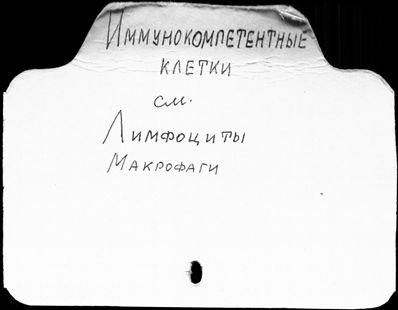 Иммунокомпетентные
клетки
см.
Лимфоциты
Макрофаги